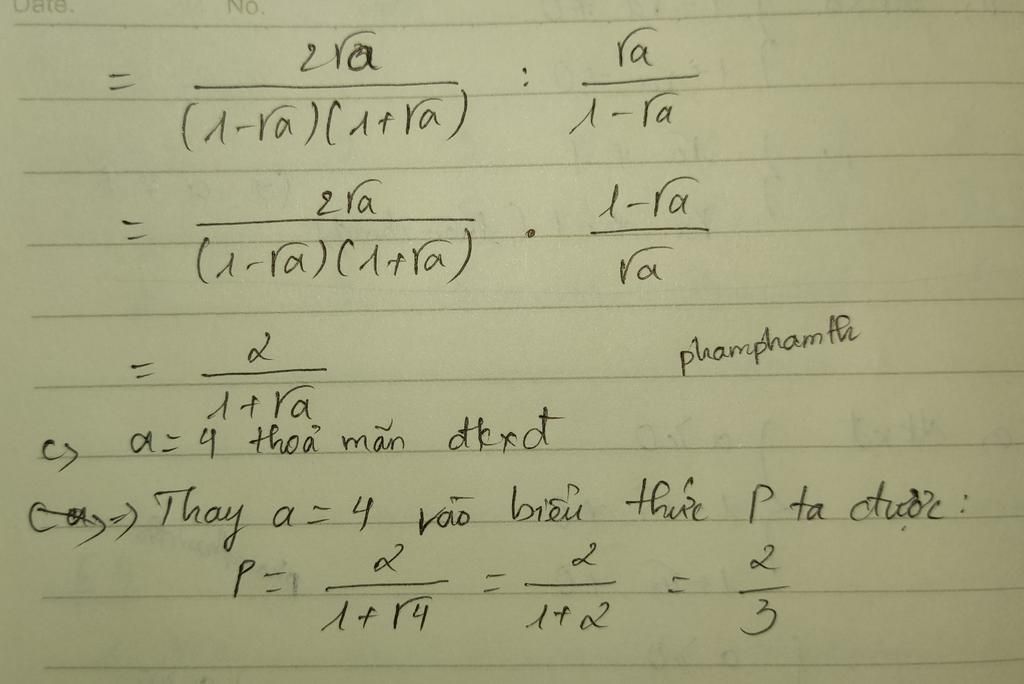 Date. No.
= 2√a / (1-√a)(1+√a) : √a / 1-√a
= 2√a / (1-√a)(1+√a) . 1-√a / √a
= 2 / 1+√a
phamphamth
c> a=4 thoả mãn đkxđ
=> Thay a=4 vào biểu thức P ta được:
P= 2 / 1+√4 = 2 / 1+2 = 2 / 3